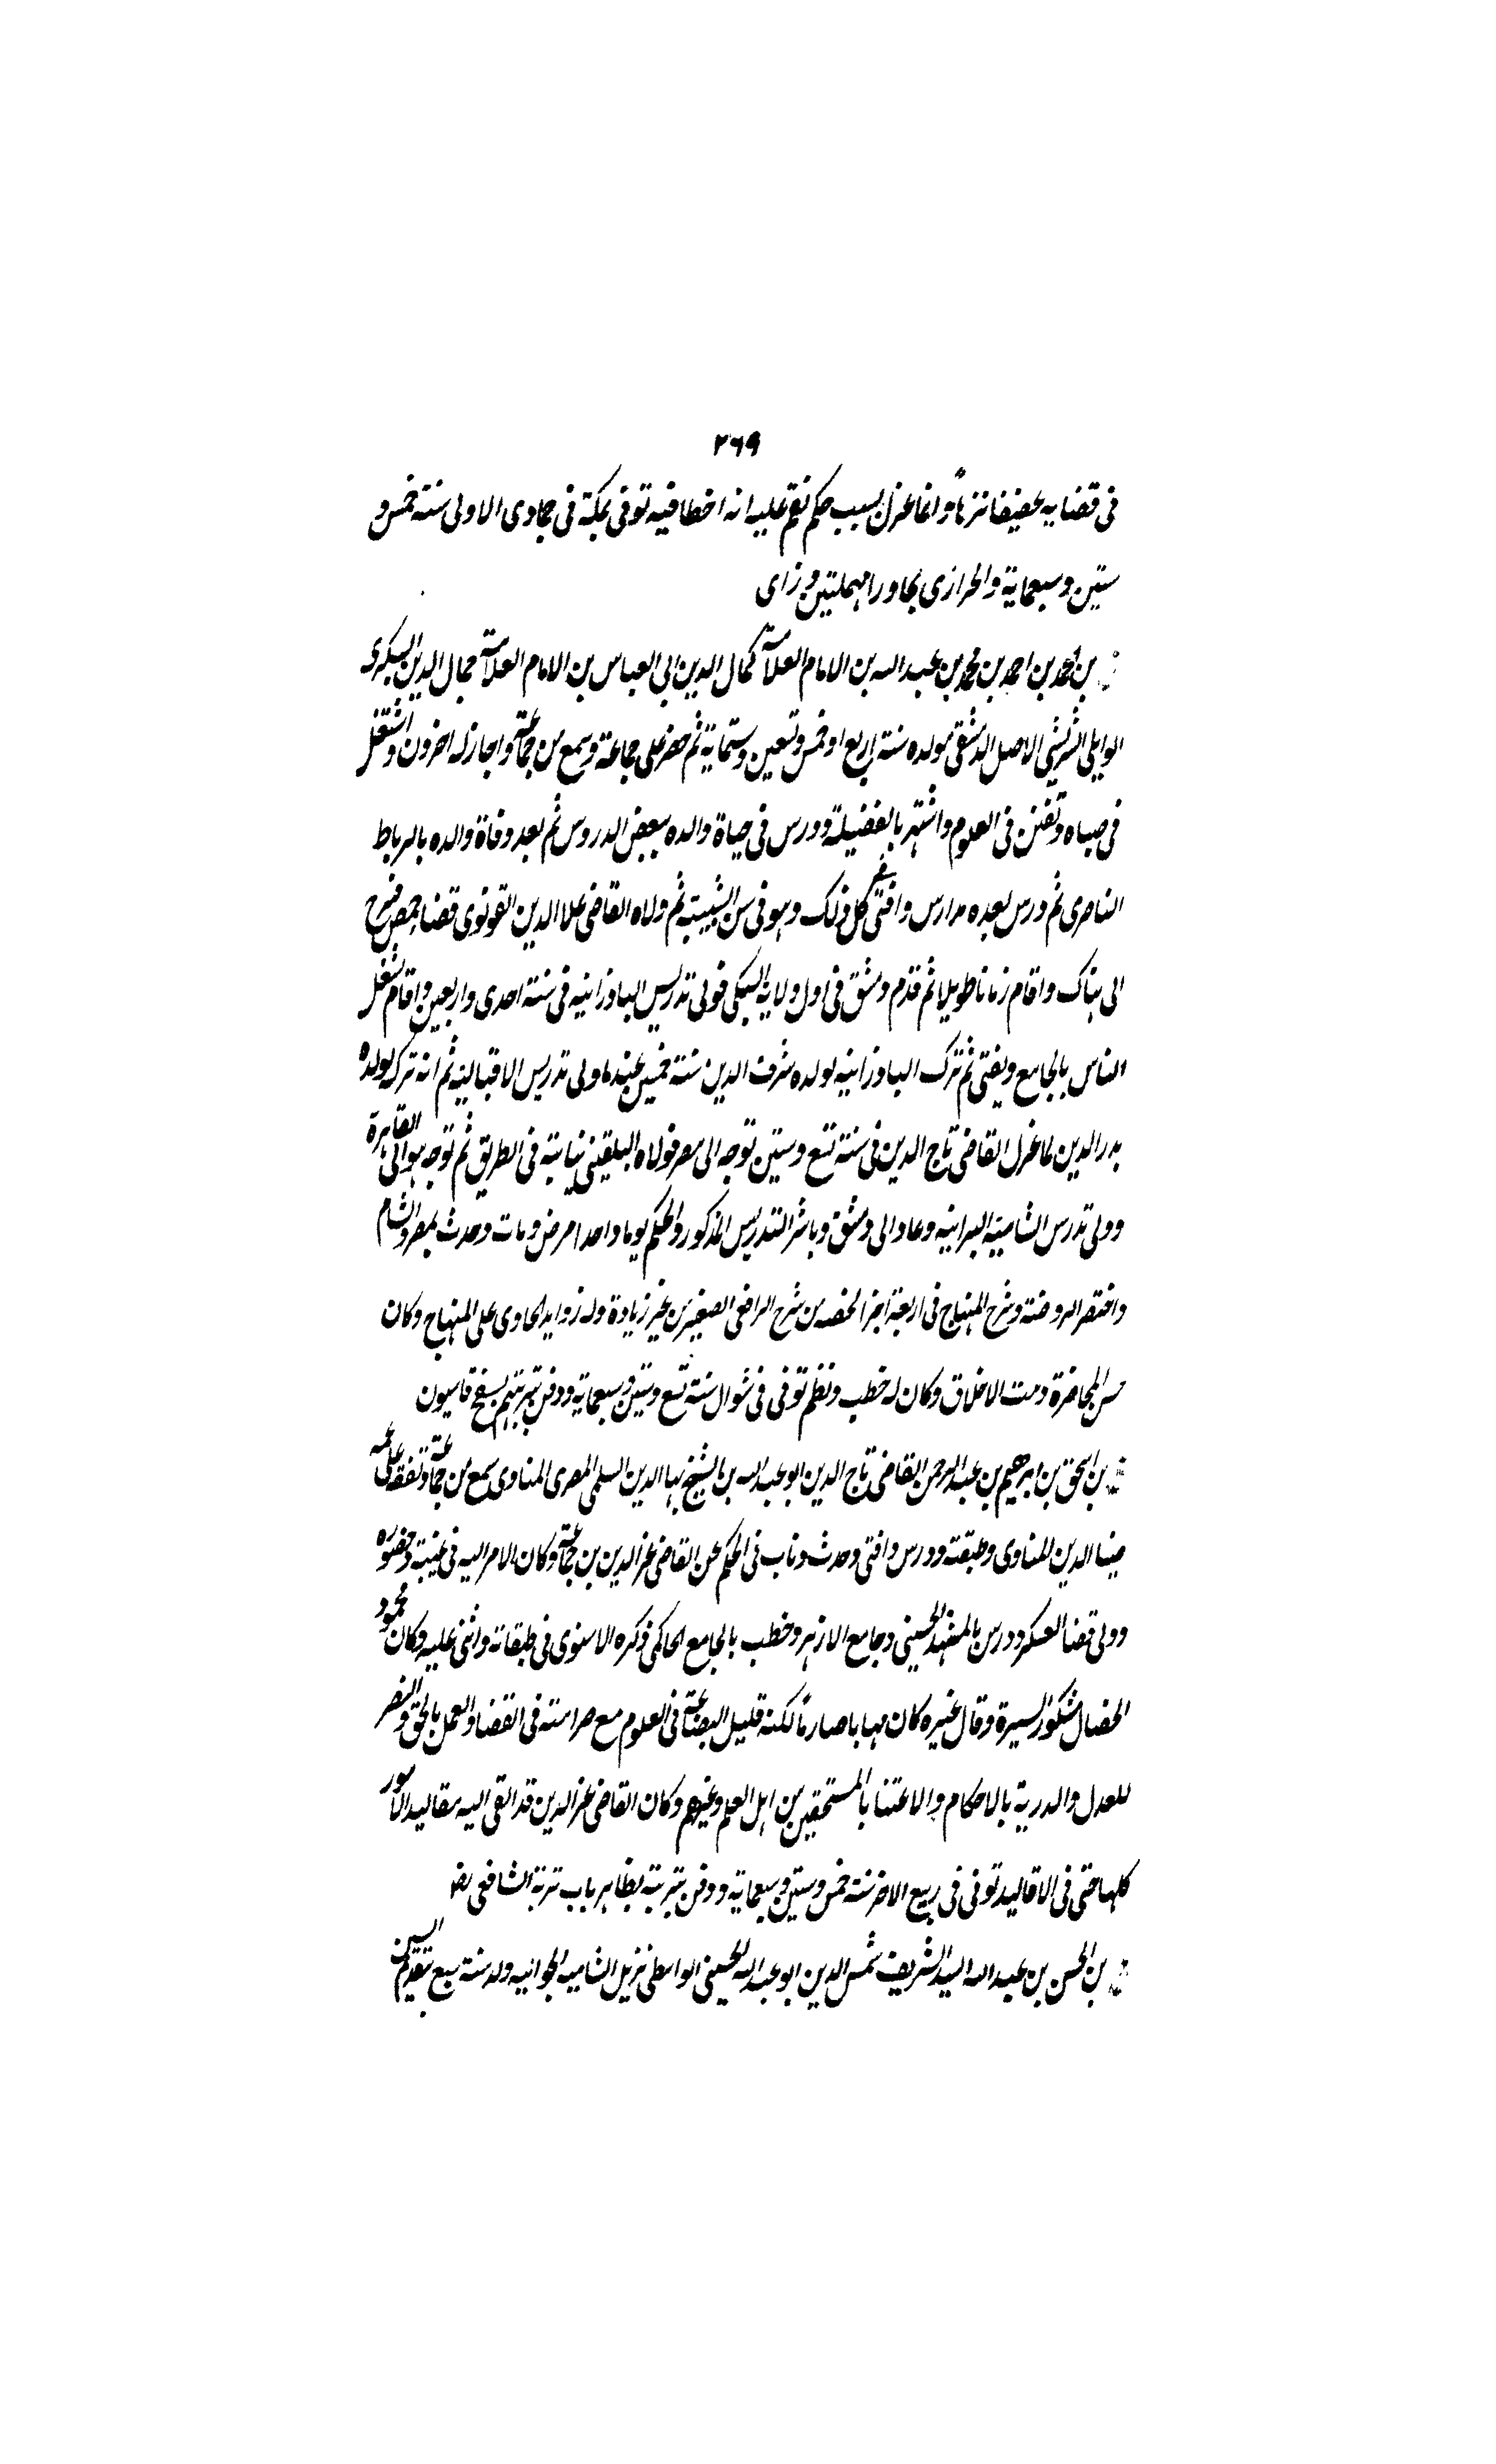 ٢٦٩
فى قضايه عفيفا نزهاً وانما عزل بسبب حكم نقم عليه انه اخطا فيه توفى بمكة فى جمادى الاولى سنة خمس و
ستين وسبعماية والحرازى بحا ورا مهملتين وزاى
بن احمد بن احمد بن محمد بن عبد الله بن الامام العلامة كمال الدين ابى العباس بن الامام العلامة جمال الدين البكرى
الوايلى الشريشى الاصل الدمشقى مولده سنة اربع او خمس وتسعين وستماية ثم حضر على جماعة وسمع من جماعة واجاز له اخرون واشتغل
فى صباه وتفنن فى العلوم واشتهر بالفضيلة ودرس فى حياة والده ببعض الدروس ثم بعد وفاة والده بالرباط
الناصرى ثم درس بعده مدارس وافتى كل ذلك وهو فى سن الشبيبة ثم ولاه القاضى علا الدين القونوى قضا حمص فخرج
الى هناك واقام زمانا طويلا ثم قدم دمشق فى اول ولاية السبكى فولى تدريس الباذرانيه فى سنة احدى واربعين واقام يشغل
الناس بالجامع ويفتى ثم ترك الباذرانيه لولده شرف الدين سنة خمسين عندما ولى تدريس الاقباليه ثم انه ترك لولده
بدر الدين لما عزل القاضى تاج الدين فى سنة تسع وستين توجه الى مصر فولاه البلقينى نيابته فى الطريق ثم توجه هو الى القاهرة
وولى تدرس الشاميه البرانيه وعاد الى دمشق وباشر التدريس المذكور والحكم يوما واحدا مرض ومات وحدث بمصر والشام
واختصر الروضة وشرح المنهاج فى اربعة اجزا لخصه من شرح الرافعى الصغير من غير زيادة وله زوايد الحاوى على المنهاج وكان
حسن المحاضرة دمث الاخلاق وكان له خطب ونظم توفى فى شوال سنة تسع وستين وسبعماية ودفن بتربتهم بسفح قاسيون
بن اسحق بن ابرهيم بن عبد الرحمن القاضى تاج الدين ابو عبد الله بن الشيخ بها الدين السلمى المصرى المناوى سمع من جماعة وتفقه على عمه
ضيا الدين المناوى وطبقته ودرس وافتى وحدث وناب فى الحكم عن القاضى عز الدين بن جماعة وكان الامر اليه فى غيبته وحضوره
وولى قضا العسكر ودرس بالمشهد الحسينى وجامع الازهر وخطب بالجامع الحاكمى ذكره الاسنوى فى طبقاته واثنى عليه وكان محمود
الخصال مشكور السيرة وقال غيره كان مهابا صارماً لكنه قليل البضاعة فى العلوم مع صرامته فى القضا والعمل بالحق والنصر
للعدل والدربة بالاحكام والاعتنا بالمستحقين من اهل العلم وغيرهم وكان القاضى عز الدين قد القى اليه مقاليد الامور
كلها حتى فى الاقاليد توفى فى ربيع الاخر سنة خمس وستين وسبعماية ودفن بتربته بظاهر باب تربة الشافعى رض
بن الحسن بن عبد الله السيد الشريف شمس الدين ابو عبد الله الحسينى الواسطى نزيل الشاميه الجوانيه ولد سنة سبع بتقديم السين